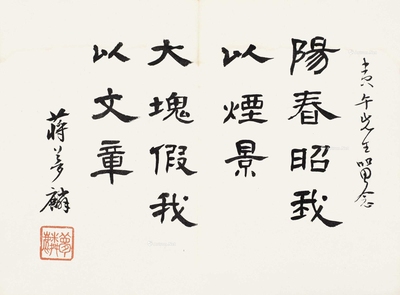 寅午先生留念
陽春昭我
以煙景
大塊假我
以文章
蔣夢麟